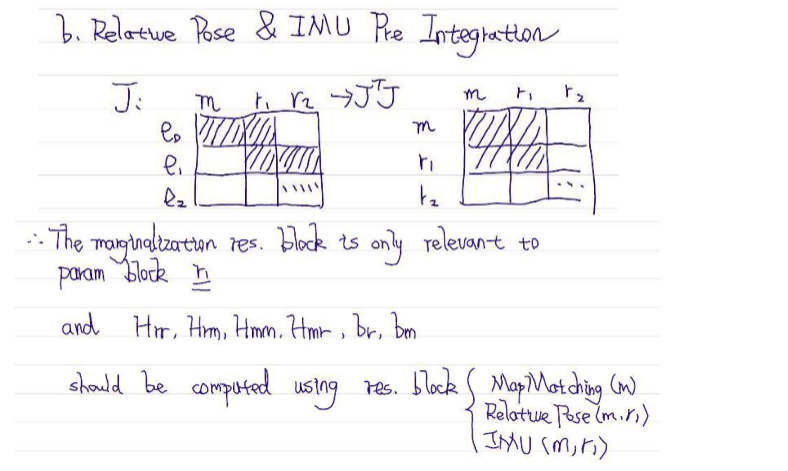 b. Relative Pose & IMU Pre Integration
J: m r₁ r₂ → JᵀJ m r₁ r₂
e₀ m
e₁ r₁
e₂ r₂
∴ The marginalization res. block is only relevant to
param block r₁
and Hrr, Hrm, Hmm, Hmr, br, bm
should be computed using res. block { MapMatching (m)
Relative Pose (m, r₁)
IMU (m, r₁)